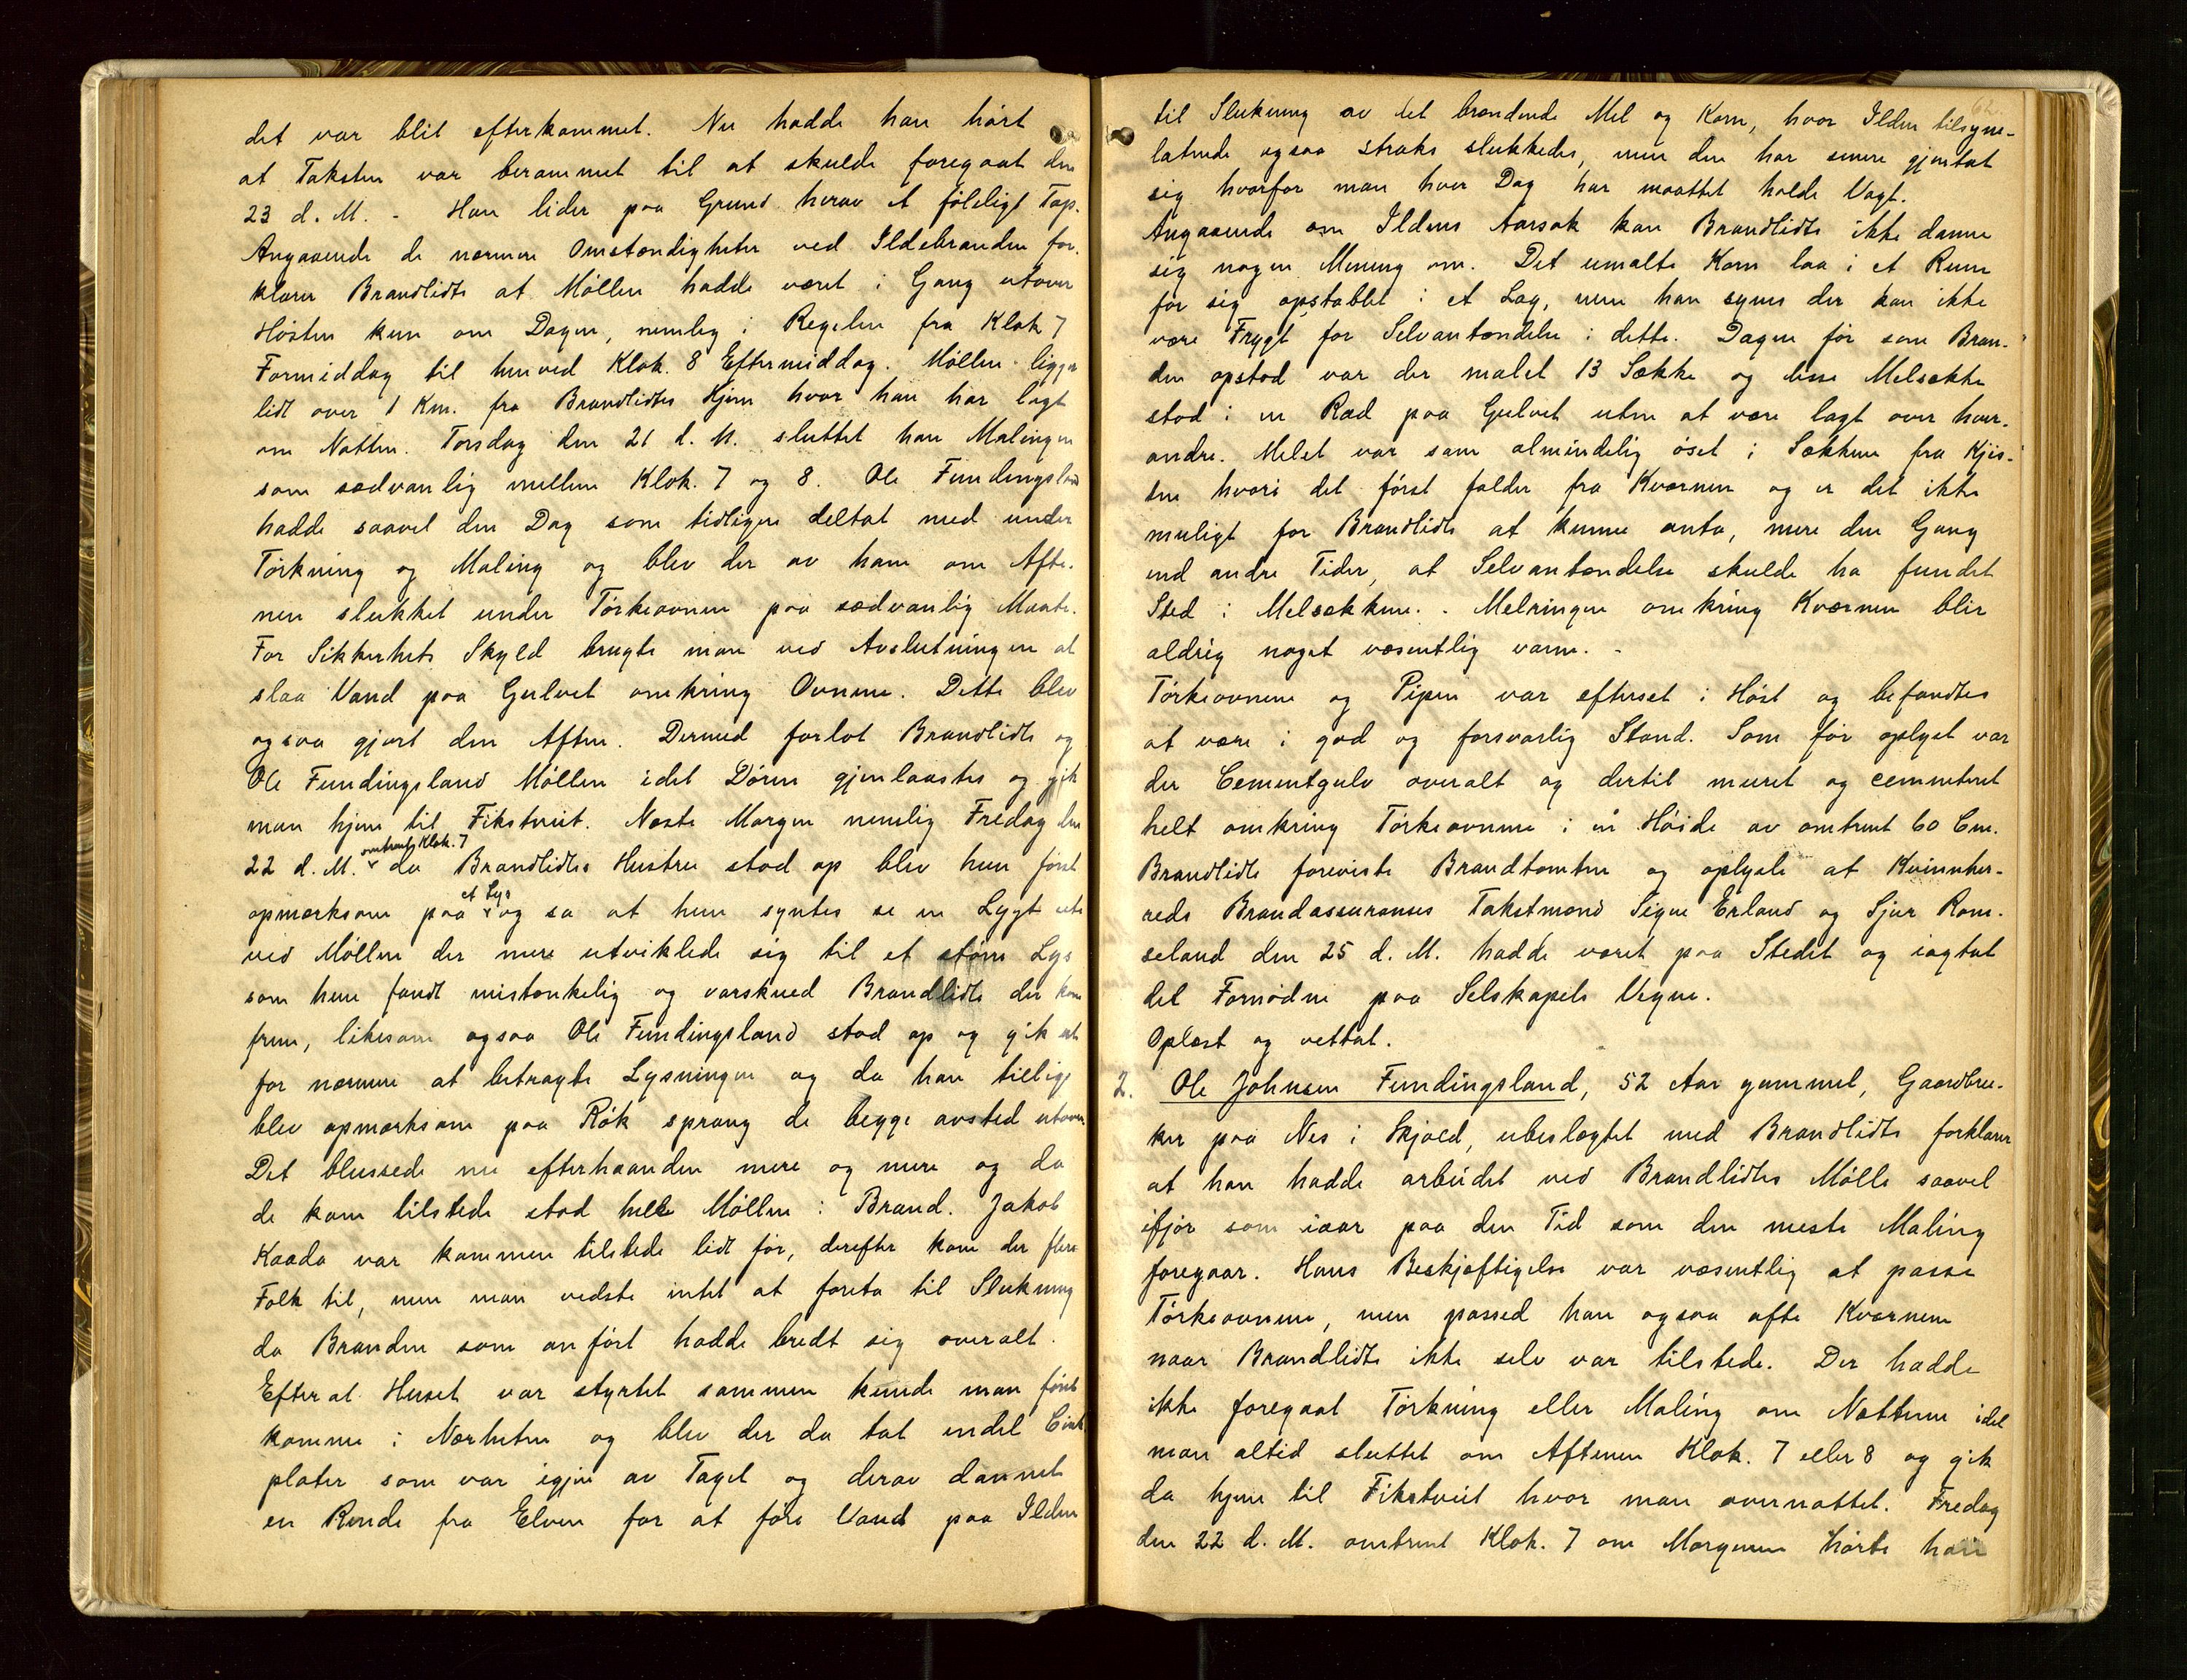 det var blit efterkommet. Nu hadde han hørt
at Taksten var berammet til at skulde foregaat den
23 d. M. - Han lider paa Grund herav et føleligt Tap.
Angaaende de nærmere Omstændigheter ved Ildebranden for-
klarer Brandlidte at Møllen hadde været i Gang utover
Høsten kun om Dagen, nemlig i Regelen fra Klok 7
Formiddag til henved Klok. 8 Eftermiddag. Møllen ligger
lidt over 1 Km. fra Brandlidtes Hjem hvor han har lagt
om Natten. Torsdag den 21 d. M. sluttet han Malingen
som sædvanlig mellem Klok. 7 og 8. Ole Fundingsland
hadde saavel den Dag som tidligere deltat med under
Tørkning og Maling og blev der av ham om Afte-
nen slukket under Tørkeovnen paa sædvanlig Maate.
For Sikkerhets Skyld brugte man ved Avslutningen at
slaa Vand paa Gulvet omkring Ovnene. Dette blev
ogsaa gjort den Aften. Dermed forlot Brandlidte og
Ole Fundingsland Møllen idet Døren gjenlaastes og gik
man hjem til Fikstveit. Næste Morgen nemlig Fredag den
omtrent Klok. 7
22 d. M. da Brandlidtes Hustru stod op blev hun først
et Lys
opmærksom paa og sa at hun syntes se en Lygt ute
ved Møllen der mere utviklede sig til et større Lys
som hun fandt mistænkelig og varskued Brandlidte der kom
frem, likesom ogsaa Ole Fundingsland stod op og gik ut
for nærmere at betragte Lysningen og da han tillige
blev opmærksom paa Røk sprang de begge avsted utover
Det blussede nu efterhaanden mere og mere og da
de kom tilstede stod hele Møllen i Brand. Jakob
Kaada var kommen tilstede lidt før, derefter kom der flere
Folk til, men man vidste intet at foreta til Slukning
da Branden som anført hadde bredt sig overalt.
Efterat Huset var styrtet sammen kunde man først
komme i Nærheten og blev der da tat endel Cink
plater som var igjen av Taget og derav dannet
en Rende fra Elven for at føre Vand paa Ilden
til Slukning av det brændende Mel og Korn, hvor Ilden tilsyne-
latende ogsaa straks slukkedes, men den har senere gjentat
sig hvorfor man hver Dag har maattet holde Vagt.
Angaaende om Ildens Aarsak kan Brandlidte ikke danne
sig nogen Mening om. Det umalte Korn laa i et Rum
for sig opstablet i et Lag, men han synes der kan ikke
være Frygt for Selvantændelse i dette. Dagen før som Bran-
den opstod var der malet 13 Sække og disse Melsække
stod i en Rad paa Gulvet uten at være lagt over hver-
andre. Melet var som almindelig øset i Sækkene fra Kjis-
ten hvori det først falder fra Kværnen og er det ikke
muligt for Brandlidte at kunne anta, mere den Gang
end andre Tider, at Selvantændelse skulde ha fundet
Sted i Melsækkene. - Melringen omkring Kværnen blir
aldrig noget væsentlig varm. -
Tørkeovnene og Pipen var efterset i Høst og befandtes
at være i god og forsvarlig Stand. Som før oplyst var
der Cementgulv overalt og dertil muret og cementeret
helt omkring Tørkeovnene i en Høide av omtrent 60 Cm.
Brandlidte foreviste Brandtomten og oplyste at Kvinnher-
reds Brandassuranses Takstmænd Sigve Erland og Sjur Ram-
seland den 25 d. M. hadde været paa Stedet og iagtat
det Fornødne paa Selskapets Vegne.
Oplæst og vettat.
2. Ole Johnsen Fundingsland, 52 Aar gammel, Gaardbru-
ker paa Nes i Skjold, ubeslægtet med Brandlidte forklarer
at han hadde arbeidet ved Brandlidtes Mølle saavel
ifjor som iaar paa den Tid som den meste Maling
foregaar. Hans Beskjæftigelse var væsentlig at passe
Tørkeovnene, men passed han ogsaa ofte Kværnene
naar Brandlidte ikke selv var tilstede. Der hadde
ikke foregaat Tørkning eller Maling om Nætterne idet
man altid sluttet om Aftenen Klok. 7 eller 8 og gik
da hjem til Fikstveit hvor man overnattet. Fredag
den 22 d. M. omtrent Klok. 7 om Morgenen hørte han